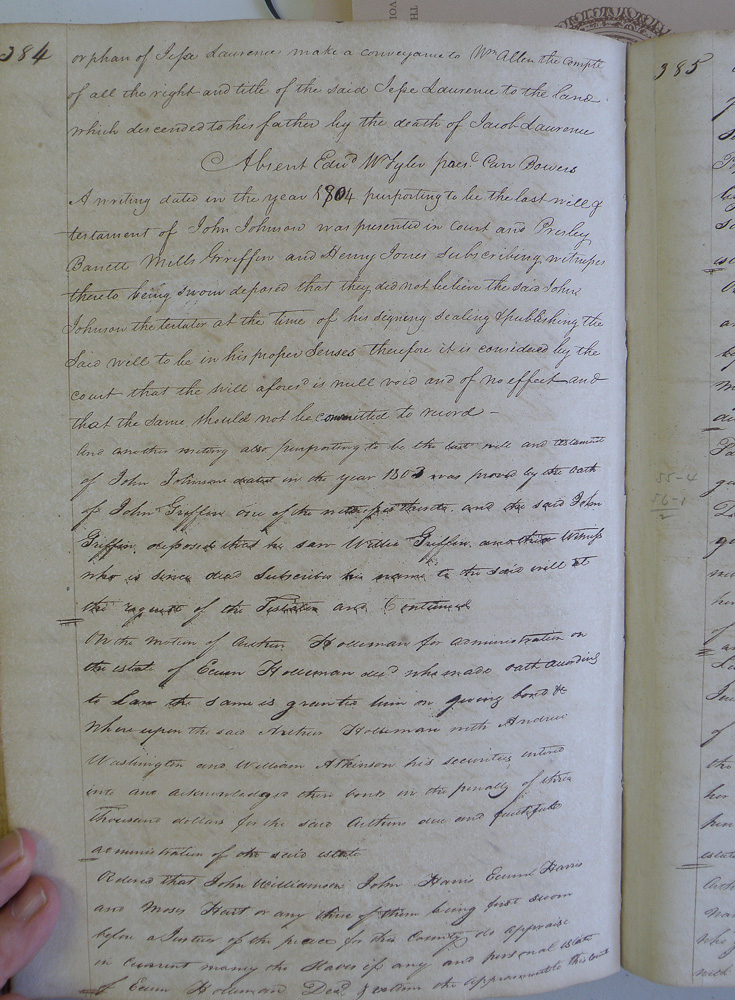 384
orphan of Jesse Laurence make a conveyance to Wm Allen the Complt
of all the right and title of the said Jesse Laurence to the land
which descended to his father by the death of Jacob Laurence
Absent Edwd W Tyler Carr Bowers
A writing dated in the year 1804 purporting to be the last will &
testament of John Johnson was presented in Court and Presley
Barrett Mills Griffin and Henry Jones subscribing witnesses
thereto being sworn deposed that they did not believe the said John
Johnson the testator at the time of his signing sealing & publishing the
said will to be in his proper senses therefore it is considered by the
court that the will aforesd is null void and of no effect and
that the same should not be committed to record -
And another writing also purporting to be the last will and testament
of John Johnson dated in the year 1803 was proved by the oath
of John Griffin one of the witnesses thereto. and the said John
Griffin, deposed that he saw Willis Griffin, another Witness
who is since dead subscribe his name to the said will at
the request of the Testator and Continued
On the motion of Arthur Holleman for administration on
the estate of Exum Holleman decd who made oath according
to Law the same is granted him on giving bond &c
Where upon the said Arthur Holleman with Andrew
Washington and William Atkinson his securities entered
into and acknowledged their bond in the penalty of three
Thousand dollars for the said Arthurs due and faithfull
administration of the said estate
Ordered that John Williamson John Harris Exum Harris
and Moses Hart or any three of them being first sworn
before a Justice of the peace for this County, do appraise
in current money the Slaves if any and personal estate
of Exum Holleman Decd & return the appraisement to this Court
385
55-4
56-1
2